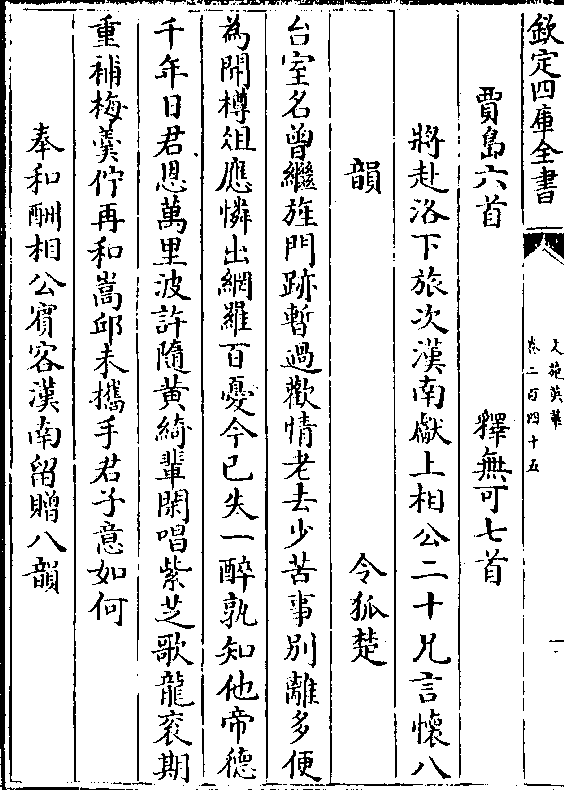 欽定四庫全書
文苑英華
卷二百四十五
一
賈島六首 釋無可七首
將赴洛下旅次漢南獻上相公二十兄言懷八
韻 令狐楚
台室名曾繼旌門跡暫過歡情老去少苦事別離多便
為開樽俎應憐出網羅百憂今已失一醉孰知他帝德
千年日君恩萬里波許隨黃綺輩閑唱紫芝歌龍衮期
重補梅羹佇再和嵩邱未攜手君子意如何
奉和酬相公賓客漢南留贈八韻